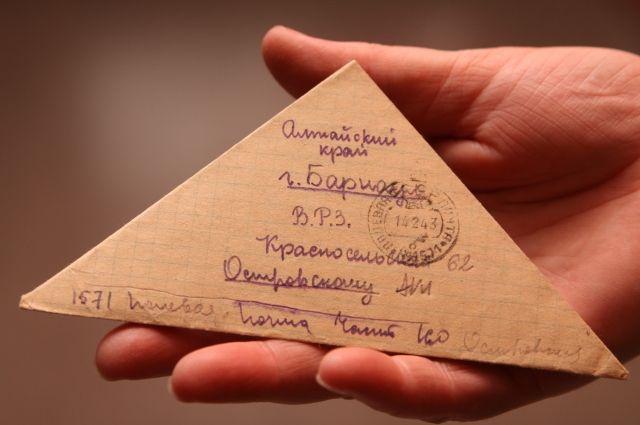 Алтайский
край
г. Барнаул
В.Р.З.
Красносельская 62
Островскому АИ
1571 Полевая, почта часть 160
14 2 43